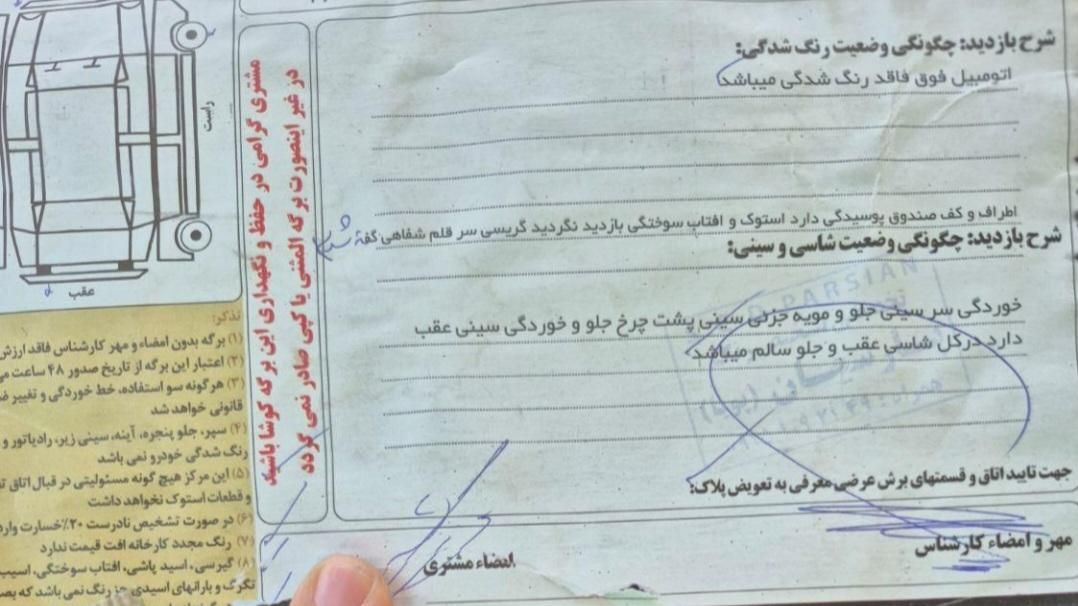 شرح بازدید: چگونگی وضعیت رنگ شدگی:
اتومبیل فوق فاقد رنگ شدگی میباشد
اطراف و کف صندوق پوسیدگی دارد استوک و افتاب سوختگی بازدید نگردید گریسی سر قلم شفاهی گفته شد
شرح بازدید: چگونگی وضعیت شاسی و سینی:
خوردگی سر سینی جلو و مویه جزئی سینی پشت چرخ جلو و خوردگی سینی عقب
دارد درکل شاسی عقب و جلو سالم میباشد
PARSIAN
جهت تایید اتاق و قسمتهای برش عرضی معرفی به تعویض پلاک:
مهر و امضاء کارشناس
امضاء مشتری
مشتری گرامی در حفظ و نگهداری این برگه کوشا باشید
در غیر اینصورت برگه المثنی یا کپی صادر نمی گردد
راست
عقب
تذکر:
(۱) برگه بدون امضاء و مهر کارشناس فاقد ارزش
(۲) اعتبار این برگه از تاریخ صدور ۴۸ ساعت می
(۳) هرگونه سو استفاده، خط خوردگی و تغییر
قانونی خواهد شد
(۴) سپر، جلو پنجره، آینه، سینی زیر، رادیاتور و
رنگ شدگی خودرو نمی باشد
(۵) این مرکز هیچ گونه مسئولیتی در قبال اتاق
و قطعات استوک نخواهد داشت
(۶) در صورت تشخیص نادرست ۲۰٪خسارت وارد
(۷) رنگ مجدد کارخانه افت قیمت ندارد
(۸) گیرسی، اسید پاشی، افتاب سوختگی، اسیب
تگرگ و بارانهای اسیدی جز رنگ نمی باشد که